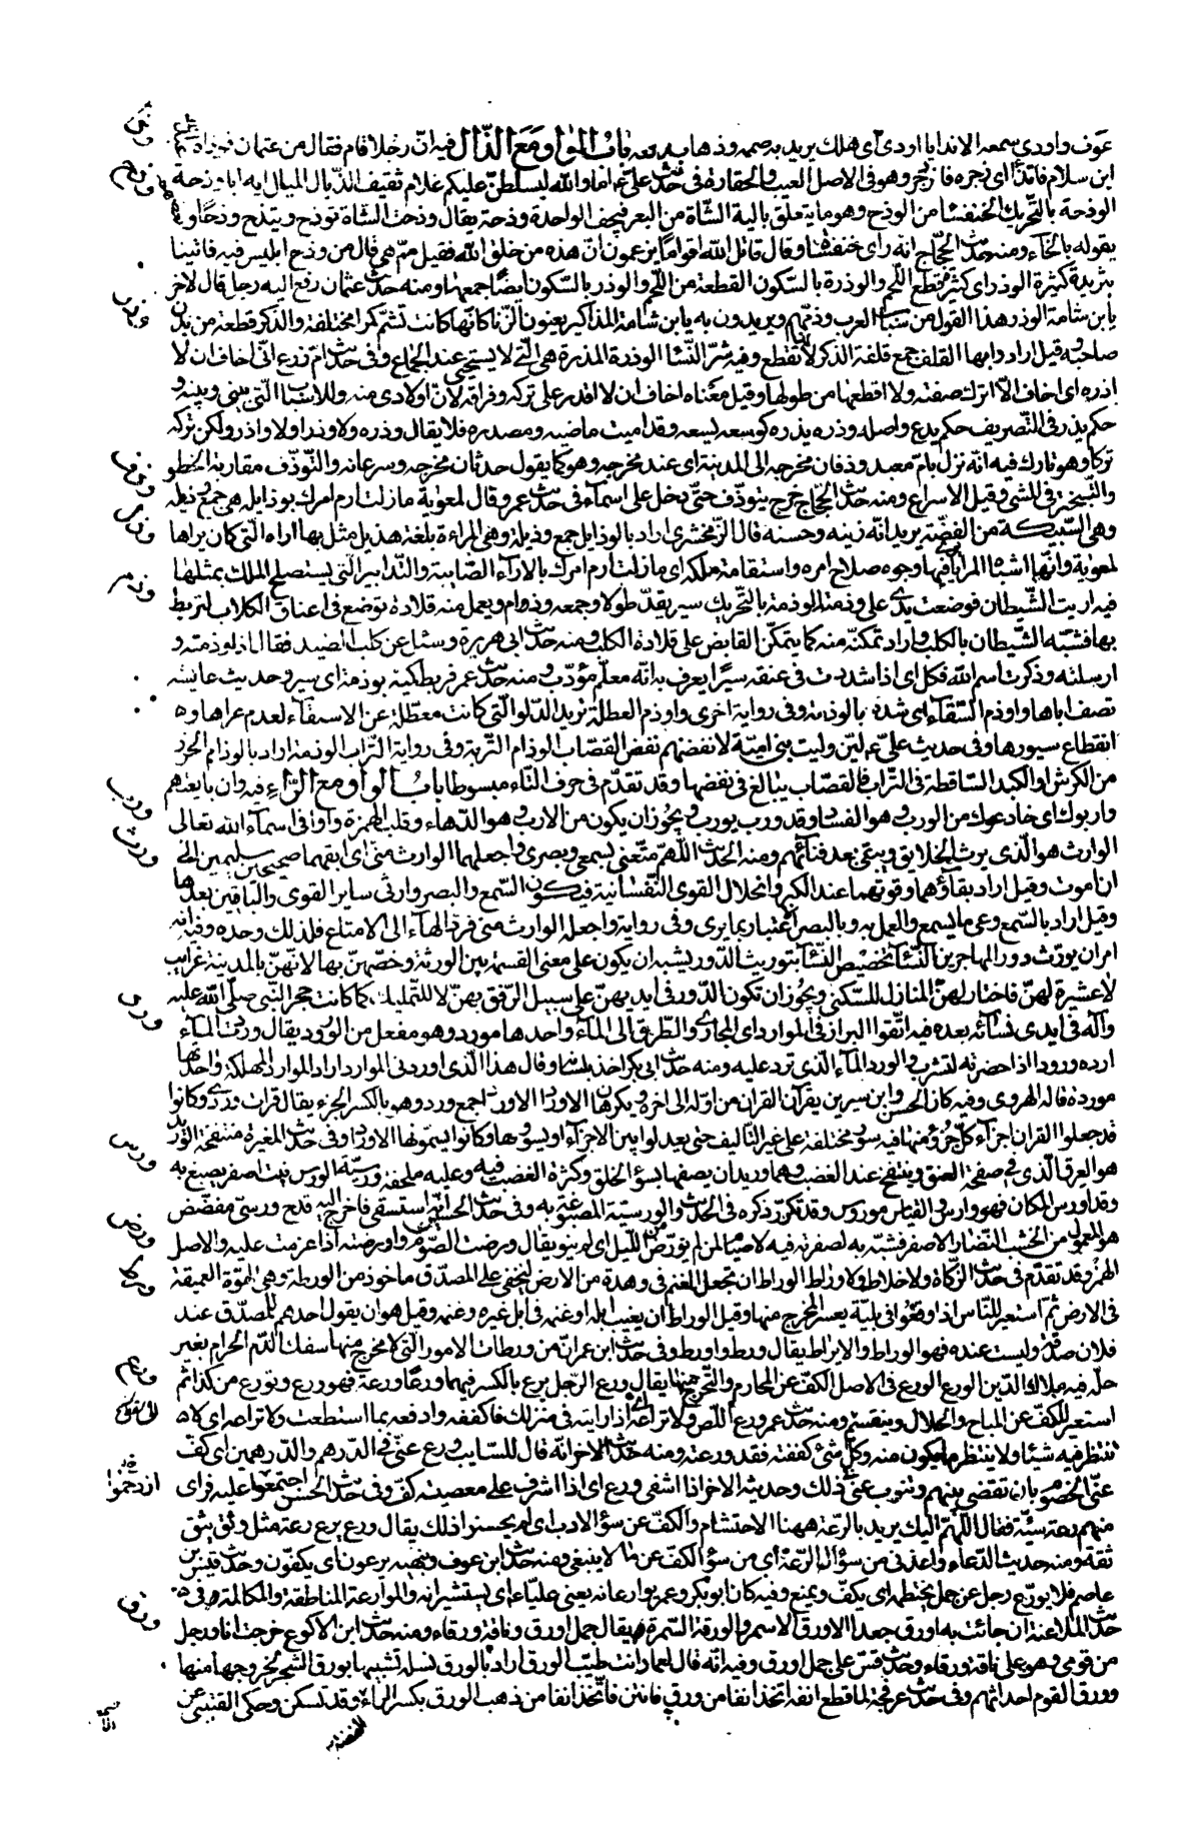 عوف واودى سمعه الا ندايا اودى اى هلك يريد به صممه وذهاب سمعه باب الواو مع الذال فيه ان رجلا قام فقال من عثمان فوذاه
ابن سلام فاتذأ اى زجره فازدجر وهو فى الاصل العيب والحقارة فى حديث على ع اما والله ليسلطن عليكم غلام ثقيف الذيال الميال ايه ابا وذحة
الوذحة بالتحريك الخنفساء من الوذح وهو ما يتعلق بالية الشاة من البعر فيجف الواحدة وذحة يقال وذحت الشاة توذح وتيذح وذحا و
يقوله بالخاء ومنه حديث الحجاج انه راى خنفساة فقال قاتل الله اقواما يزعمون ان هذه من خلق الله فقيل مم هى قال من وذح ابليس فيه فاتينا
بثريدة كثيرة الوذر اى كثيرة قطع اللحم والوذرة بالسكون القطعة من اللحم والوذر بالسكون ايضا جمعها ومنه حديث عثمان رفع اليه رجل قال لاخر
يا بن شامة الوذر هذا القول من سباب العرب وذمهم ويريدون به يا بن شامة المذاكير يعنون الزنا كانها كانت تشم كمرا مختلفة والذكر قطعة من بدن
صاحبه وقيل ارادوا بها القلف جمع قلفة الذكر لانها تقطع وفيه شر النساء الوذرة المذرة هى التى لا يستحيى عند الجماع وفى حديث ام زرع انى اخاف ان لا
اذره اى اخاف الا اترك صفته ولا اقطعها من طولها وقيل معناه اخاف ان لا اقدر على تركه وفراقه لان اولادى منه وللاسباب التى بينى وبينه و
حكم يذر فى التصريف حكم يدع واصله وذره يذره كوسعه يسعه وقد اميت ماضيه ومصدره فلا يقال وذره ولا وذرا ولا واذر ولكن تركه
تركا وهو تارك فيه انه نزل بام معبد وذفان مخرجه الى المدينة اى عند مخرجه وهو كما يقول حدثان مخرجه وسرعانه والتوذف مقاربة الخطو
والتبختر فى المشى وقيل الاسراع ومنه حديث الحجاج خرج يتوذف حتى دخل على اسماء فى حديث عمرو قال لمعوية ما زلت ارم امرك بوذايله هى جمع وذيلة
وهى السبيكة من الفضة يريد انه زينه وحسنه قال الزمخشرى اراد بالوذايل جمع وذيلة وهى المراءة بلغة هذيل مثل بها اراه التى كان يراها
لمعوية وانها اشباه المرايا يرى فيها وجوه صلاح امره واستقامة ملكه اى ما زلت ارم امرك بالاراء الصايبة والتدابير التى يستصلح الملك بمثلها
فيه اريت الشيطان فوضعت يدى على وذمته الوذمة بالتحريك سير يقد طولا وجمعه وذام ويعمل منه قلادة توضع فى اعناق الكلاب لتربط
بها فشبه الشيطان بالكلب واراد تمكنه منه كما يتمكن القابض على قلادة الكلب ومنه حديث ابى هريرة وسئل عن كلب الصيد فقال اذا وذمته و
ارسلته وذكرت اسم الله فكل اى اذا شددت فى عنقه سيرا يعرف به انه معلم مؤدب ومنه حديث عمر فربط كميه بوذمة اى سير وحديث عايشه
تصف اباها واوذم السقاء اى شده بالوذمة وفى رواية اخرى واوذم العطلة تريد الدلو التى كانت معطلة عن الاستقاء لعدم عراها و
انقطاع سيورها وفى حديث على ع لئن وليت بنى امية لانفضنهم نفض القصاب الوذام التربة وفى رواية التراب الوذمة اراد بالوذام الحزز
من الكرش او الكبد الساقطة فى التراب فالقصاب يبالغ فى نفضها وقد تقدم فى حرف التاء مبسوطا باب الواو مع الراء فيه وان بايعتهم
واربوك اى خادعوك من الورب وهو الفساد وقد ورب يورب ويجوز ان يكون من الارب وهو الدهاء وقلب الهمزة واوا فى اسماء الله تعالى
الوارث هو الذى يرث الخلايق ويبقى بعد فنائهم ومنه الحديث اللهم متعنى بسمعى وبصرى واجعلهما الوارث منى اى ابقهما صحيحين سليمين الى
ان اموت وقيل اراد بقاؤهما وقوتهما عند الكبر وانحلال القوى النفسانية فيكون السمع والبصر وارثى ساير القوى والباقيين بعدها
وقيل اراد بالسمع وعى ما يسمع والعمل به وبالبصر الاعتبار بما يرى وفى رواية واجعله الوارث منى فرد الهاء الى الامتاع فلذلك وحده وفيه انه
امر ان يورث دور المهاجرين النساء تخصيص النساء بتوريث الدور يشبه ان يكون على معنى القسمة بين الورثة وخصهن بها لانهن بالمدينة غرايب
لا عشيرة لهن فاختار لهن المنازل للسكنى ويجوز ان تكون الدور فى ايديهن على سبيل الرفق بهن لا للتمليك كما كانت حجر النبى صلى الله عليه
وآله فى ايدى نسائه بعده فيه اتقوا البراز فى الموارد اى المجارى والطرق الى الماء واحدها مورد وهو مفعل من الورود يقال وردت الماء
ارده ورودا اذا حضرته لتشرب والورد الماء الذى ترد عليه ومنه حديث ابى بكر اخذ بلسانه وقال هذا الذى اوردنى الموارد اراد الموارد المهلكة واحدتها
موردة قاله الهروى وفيه كان الحسن وابن سيرين يقرآن القران من اوله الى اخره ويكرهان الاوراد الاوراد جمع ورد وهو بالكسر الجزء يقال قرات وردى وكانوا
قد جعلوا القران اجزاء كل جزؤ منها فيه سور مختلفة على غير التاليف حتى يعدلوا بين الاجزاء ويسووها وكانوا يسمونها الاوراد وفى حديث المغيرة منتفخة الوريد
هو العرق الذى فى صفحة العنق وينتفخ عند الغضب وهما وريدان يصفها بسوء الخلق وكثرة الغضب فيه وعليه ملحفة ورسية الورس نبت اصفر يصبغ به
وقد اورس المكان فهو وارس والقياس مورس وقد تكرر ذكره فى الحديث والورسية المصبوغة به وفى حديث الحسين انه استسقى فاخرج اليه قدح ورسى مفضض
هو المعمول من الخشب النضار الاصفر فشبه به لصفرته فيه لا صيام لمن لم يورض من الليل اى لم ينو يقال ورضت الصوم واورضته اذا عزمت عليه والاصل
الهمز وقد تقدم فى حديث الزكاة ولا خلاط ولا وراط الوراط ان تجعل الغنم فى وهدة من الارض لتخفى على المصدق ماخوذ من الورطة وهى الهوة العميقة
فى الارض ثم استعير للناس اذا وقعوا فى بلية يعسر المخرج منها وقيل الوراط ان يغيب ابله او غنمه فى ابل غيره وغنمه وقيل هو ان يقول احدهم للمصدق عند
فلان صدقة وليست عنده فهو الوراط والايراط يقال ورط واورط وفى حديث ابن عمر ان من ورطات الامور التى لا مخرج منها سفك الدم الحرام بغير
حله فيه ملاك الدين الورع الورع فى الاصل الكف عن المحارم والتحرج منها يقال ورع الرجل يرع بالكسر فيهما ورعا ورعة فهو ورع وتورع من كذا ثم
استعير للكف عن المباح والحلال وينقسم ومنه حديث عمر ورع اللص ولا تراعه اى اذا رايته فى منزلك فاكففه وادفعه بما استطعت ولا تراعه اى لا
تنتظر فيه شيئا ولا تنتظر ما يكون منه وكل شئ كففته فقد ورعته ومنه حديثه الاخر انه قال للسايب ورع عنى فى الدرهم والدرهمين اى كف
عنى الخصوم بان تقضى بينهم وتنوب عنى فى ذلك وحديثه الاخر اذا اشفى ورع اى اذا اشرف على معصية كف وفى حديث الحسن اجتمعوا عليه فراى
منهم رعة سيئة فقال اللهم اليك يريد بالرعة ههنا الاحتشام والكف عن سؤ الادب اى لم يحسنوا ذلك يقال ورع يرع رعة مثل وثق يثق
ثقة ومنه حديث الدعاء واعذنى من سؤ الرعة اى من سؤ الكف عن ما لا ينبغى ومنه حديث ابن عوف وبنهيه يرعون اى يكفون وحديث قيس بن
عاصم فلا يورع رجل عن جمل يختطمه اى يكف ويمنع وفيه كان ابو بكر وعمر يوارعانه يعنى عليا ع اى يستشيرانه والموارعة المناطقة والمكالمة وفى
حديث الملاعنة ان جائت به اورق جعدا الاورق الاسمر والورقة السمرة يقال جمل اورق وناقة ورقاء ومنه حديث ابن الاكوع خرجت انا ورجل
من قومى وهو على ناقة ورقاء وحديث قس على جمل اورق وفيه انه قال لعمار انت طيب الورق اراد بالورق نسله تشبيها بورق الشجر لخروجها منها
وورق القوم احداثهم وفى حديث عرفجة لما قطع انفه اتخذ انفا من ورق فانتن فاتخذ انفا من ذهب الورق بكسر الراء وقد تسكن وحكى القتيبى عن
وذح
وذر
وذف
وذل
وذم
ورب
ورث
ورد
ورس
ورض
ورط
ورع
ازدحموا
ورق